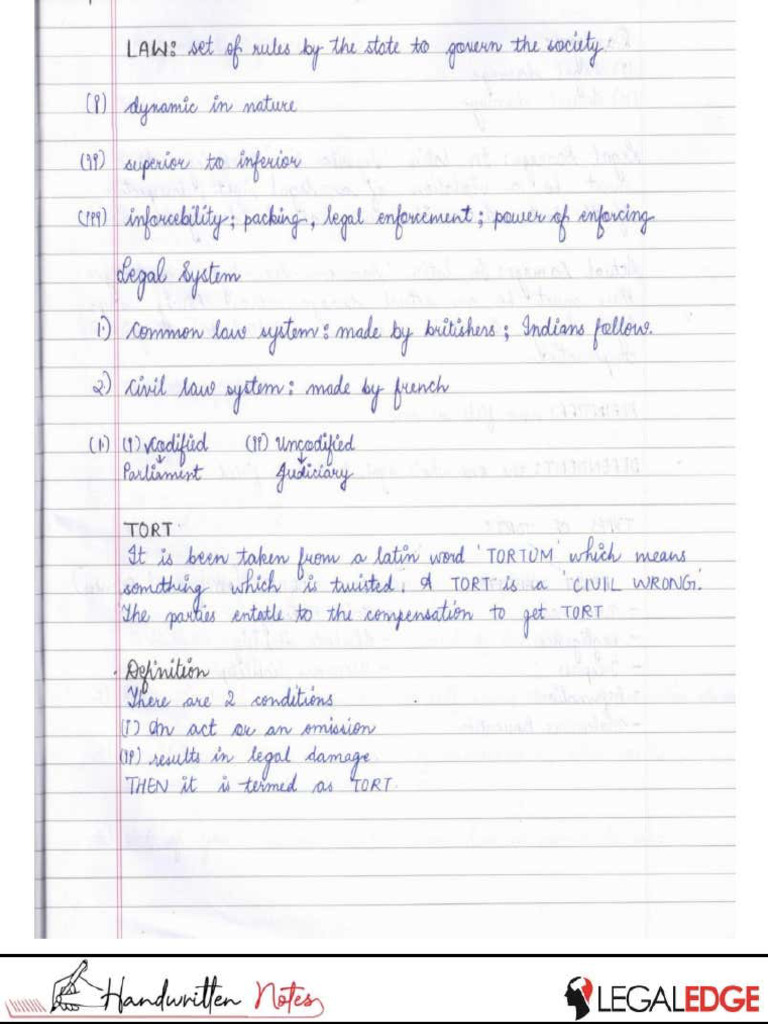 LAW: set of rules by the state to govern the society.
(i) dynamic in nature
(ii) superior to inferior
(iii) inforcebility; packing, legal enforcement; power of enforcing
Legal System
1.) common law system: made by britishers; Indians follow.
2.) civil law system: made by french
(1.) (i) codified (ii) uncodified
Parliament Judiciary
TORT
It is been taken from a latin word 'TORTUM' which means
something which is twisted. A TORT is a 'CIVIL WRONG'.
The parties entatle to the compensation to get TORT
Definition
There are 2 conditions
(I) An act or an omission
(ii) results in legal damage
THEN it is termed as TORT.
Handwritten Notes
LEGALEDGE